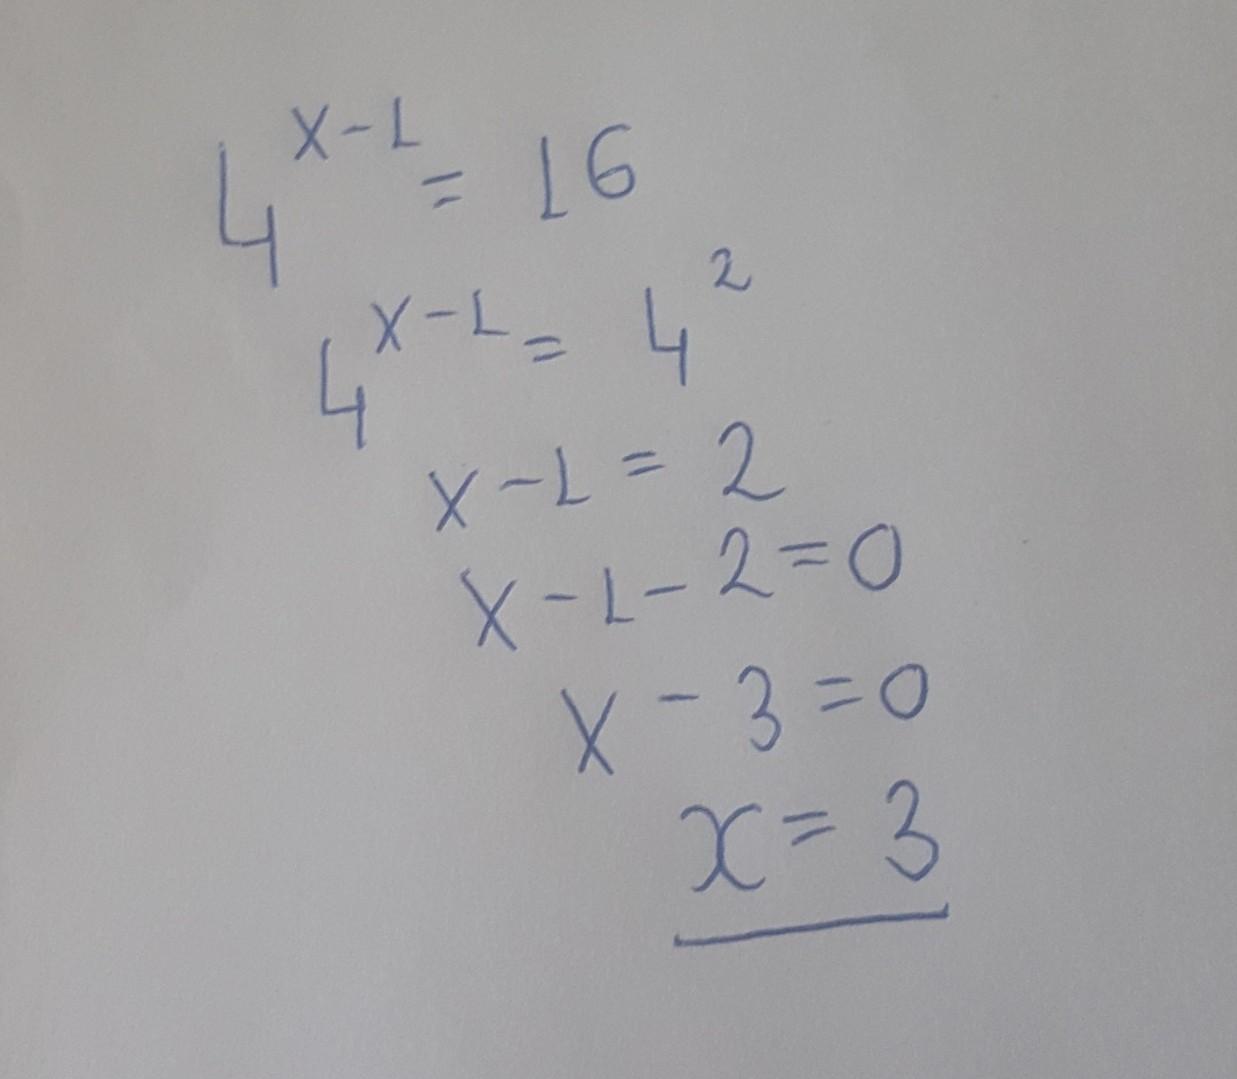 4^{x-1} = 16
4^{x-1} = 4^2
x-1 = 2
x-1-2=0
x-3=0
x=3